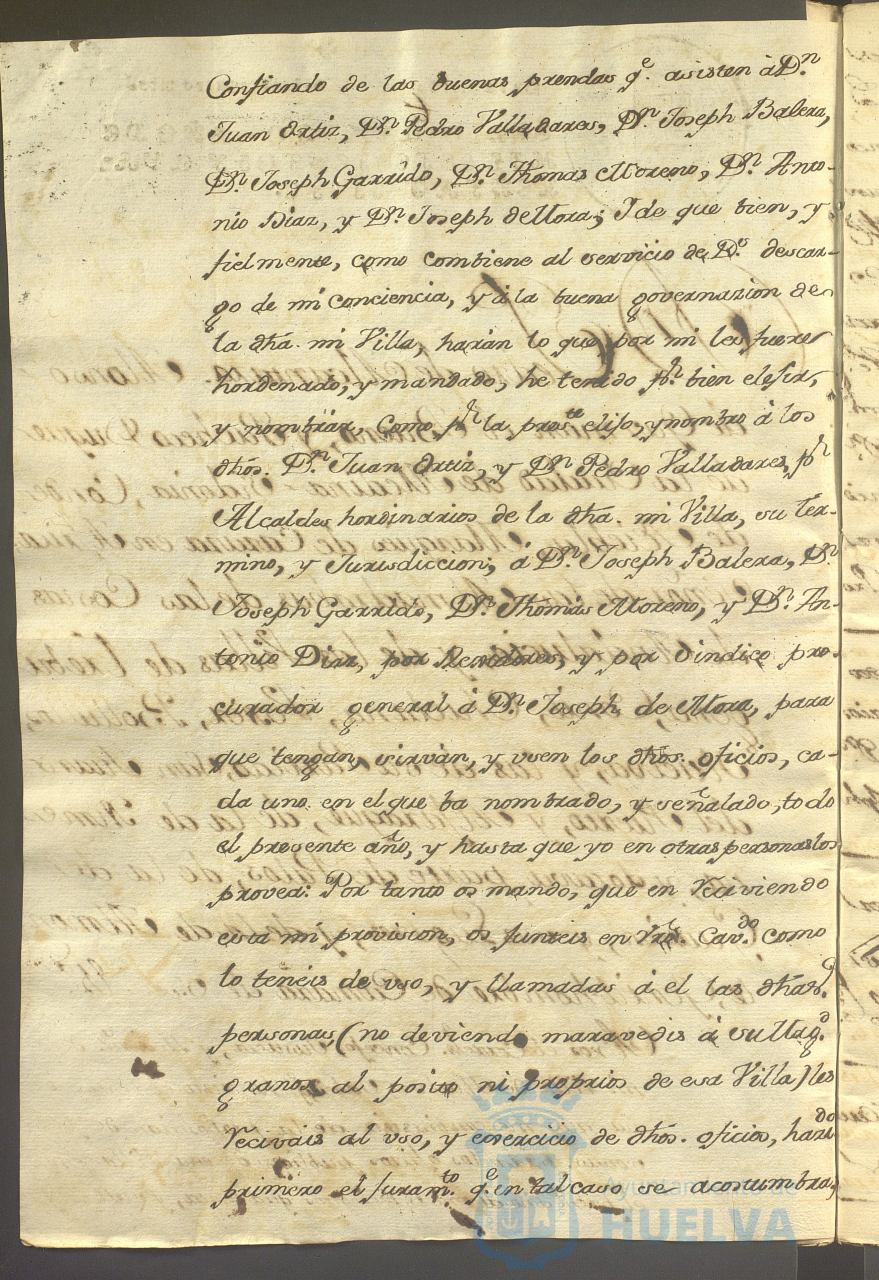 Confiando de las buenas prendas q.e asisten â D.n
Juan Ortiz, D.n Pedro Valladares, D.n Joseph Balera,
D.n Joseph Garrido, D.n Thomas Moreno, D.n Anto-
nio Diaz, y D.n Joseph de Mora; I de que bien, y
fielmente, como combiene al servicio de D.s descar-
go de mi conciencia, y â la buena governazion de
la dha. mi Villa, harán lo que por mi les fuere
hordenado, y mandado, he tenido p.r bien elejir,
y nombrar, Como p.r la pres.te elijo, y nombro â los
dhos. D.n Juan Ortiz, y D.n Pedro Valladares, p.r
Alcaldes hordinarios de la dha. mi Villa, su ter-
mino, y Jurisdiccion; â D.n Joseph Balera, D.n
Joseph Garrido, D.n Thomás Moreno, y D.n An-
tonio Diaz, por Rexidores, y por Sindico pro-
curador general â D.n Joseph de Mora, para
que tengan, sirván, y usen los dhos. oficios, ca-
da uno en el que ba nombrado, y señalado, todo
el presente año, y hasta que yo en otras personas los
provea: Por tanto os mando, que en Reciviendo
esta mi provision, os junteis en vro. Cav.do como
lo teneis de uso, y llamadas â el las dhas.
personas, (no deviendo maravedis â su Mag.d
granos al posito ni proprios de esa Villa) les
Recivais al uso, y exercicio de dhos. oficios, hazi.do
primero el juram.to q.e en tal caso se acostumbra,
Ayuntamiento de
HUELVA